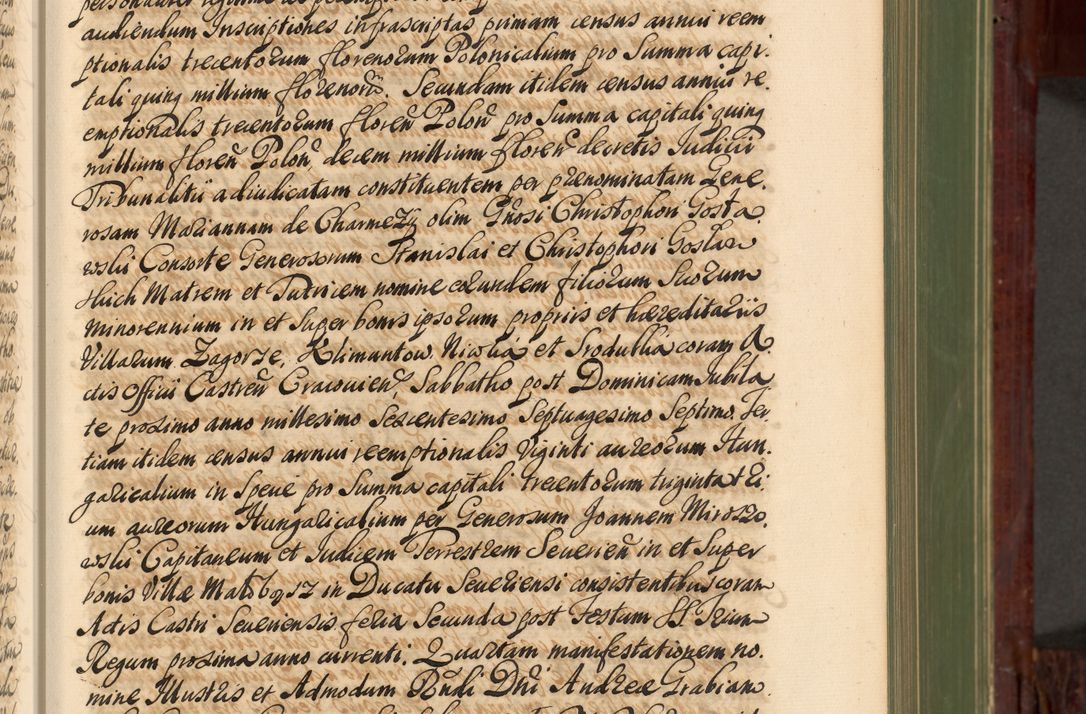 audiendum Inscriptiones infrascriptas primam census annui reem
ptionalis trecentorum florenorum Polonicalium pro Summa capi:
tali quinq millium florenorũ. Secundam itidem census annui re.
emptionalis trecentorum floreñ Poloñ pro Summa capitali quinq
millium floreñ Poloñ, decem millium floreñ decretis Judicii
Tribunalitii adiudicatam constituentem per prænominatam Gene.
rosam Mariannam de Charmezy olim Gñosi Christophori Gosła.
wslii Consorte Generosorum Stanislai et Christophori Goslaw
slich Matrem et Tutricem nomine eorundem filiorum Suorum
Minorennium in et Super bonis ipsorum propriis et hæreditariis
Villarum Zagorze, Klimantow. Niwka et Srodulka coram A.
ctis Officii Castreñ Cracovieñ, Sabbatho post Dominicam Jubila
te proximo anno millesimo Sexcentesimo Septuagesimo Septimo. Ter
tiam itidem census annui reemptionalis Viginti aureorum Hun.
garicalium in Specie pro Summa capitali trecentorum triginta tri.
um aureorum Hungaricalium per Generosum Joannem Miroszo.
wslii Capitaneum et Judicem Terrestrem Severieñ in et Super
bonis Villæ in Ducatu Severiensi consistentibus coram
Actis Castri Severiensis feria Secunda post Festum SS. Trium
Regum proxima anno currenti. Quartam manifestationem no.
mine Illustris et Admodum Rñdi Dñi Andreæ Grabian